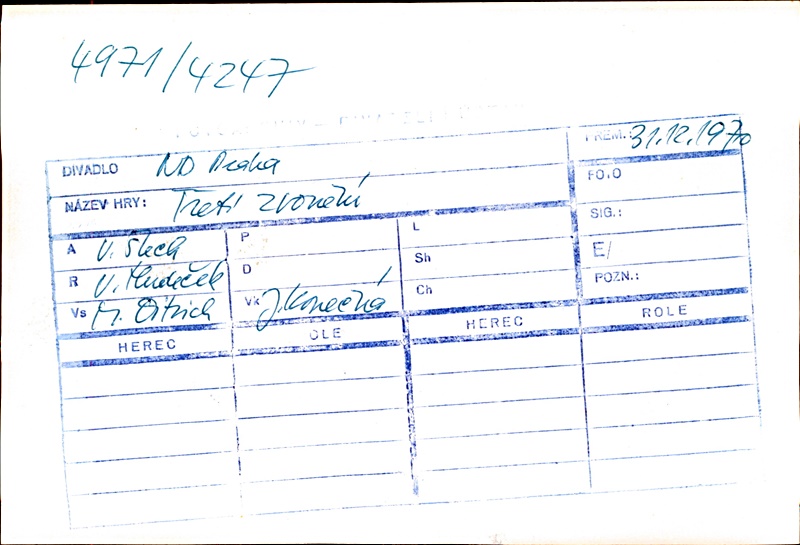 4971/4247
PREM.: 31.12.1970
DIVADLO ND Praha
FOTO
NÁZEV HRY: Třetí zvonění
SIG.:
A V. Štech
P
L
E/
R V. Hudeček
D
Sh
POZN.:
Vs
Vk J. Konečná
Ch
HEREC ROLE HEREC ROLE